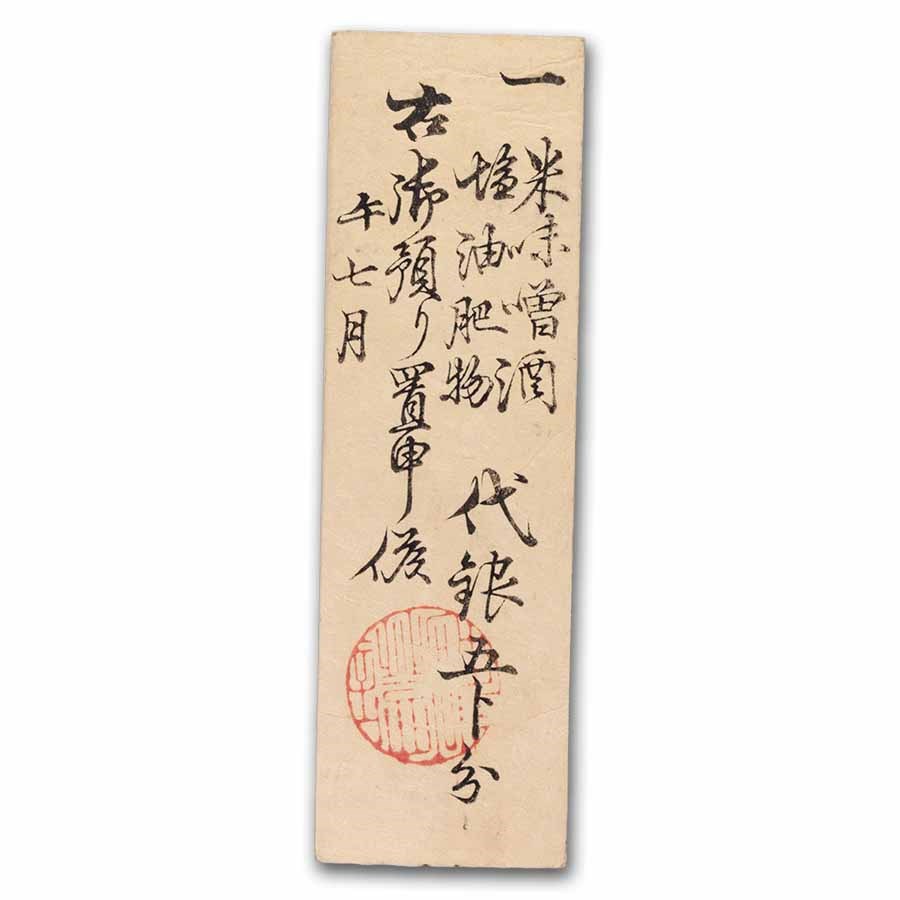 一
米味噌酒
塩油肥物
代銀五ト分
右御預り置申候
午七月